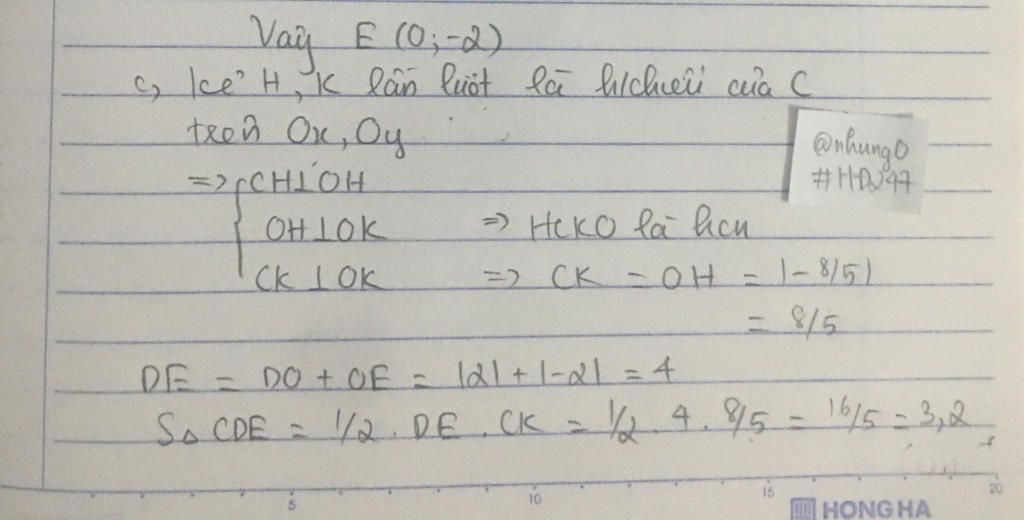 Vậy E (0;-2)
c, Kẻ H, K lần lượt là h/chiếu của C
trên Ox, Oy
@nhung0
#HĐ247
=> { CH⊥OH
OH⊥OK => HCKO là hcn
CK⊥OK => CK = OH = |-8/5|
= 8/5
DE = DO + OE = |2| + |-2| = 4
S△CDE = 1/2 . DE . CK = 1/2 . 4 . 8/5 = 16/5 = 3,2
5 10 15 20
HONG HA